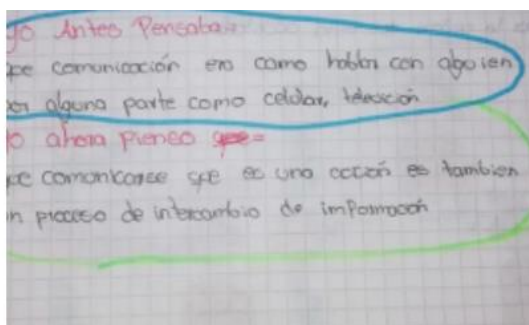 yo Antes Pensaba
que comunicación era como hablar con alguien
por alguna parte como celular, television
yo ahora pienso que=
que comunicarse que es una acción es tambien
un proceso de intercambio de imformación